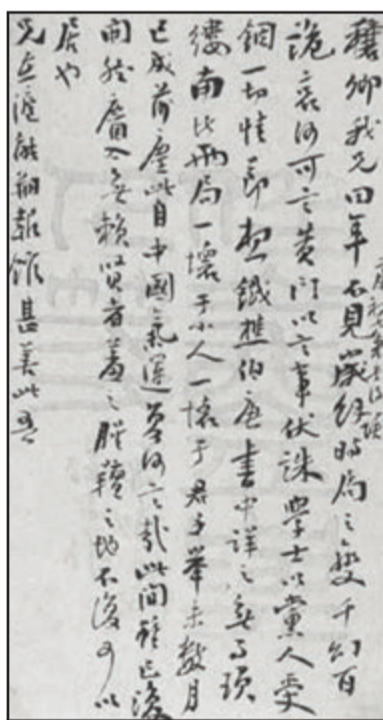 穰卿我兄四年不見歲終時局之變千幻百
詭哀何可言黃門以言事伏誅學士以黨人受
錮一切情節想鐵樵伯唐書中詳之無可瑣
縷南北兩局一壞于小人一壞于君子舉未數月
已成前塵此自中國氣運莫何言哉此間雖已復
開然麕入無賴賢者羞之腥羶之地不復可以
居也
兄在滬能翔報館甚善此吾